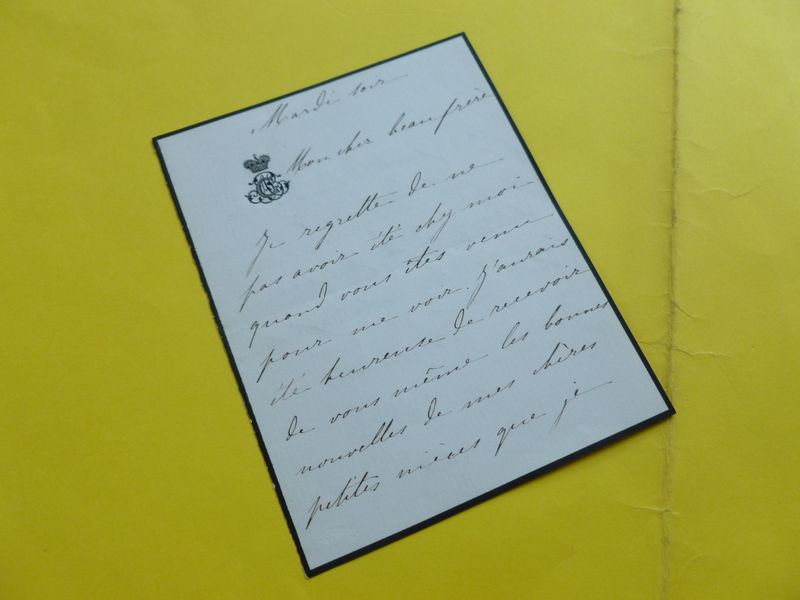 Mardi soir
Mon cher beau frère
Je regrette de ne
pas avoir été chez moi
quand vous êtes venu
pour me voir. J'aurais
été heureuse de recevoir
de vous même les bonnes
nouvelles de mes chères
petites nièces que je